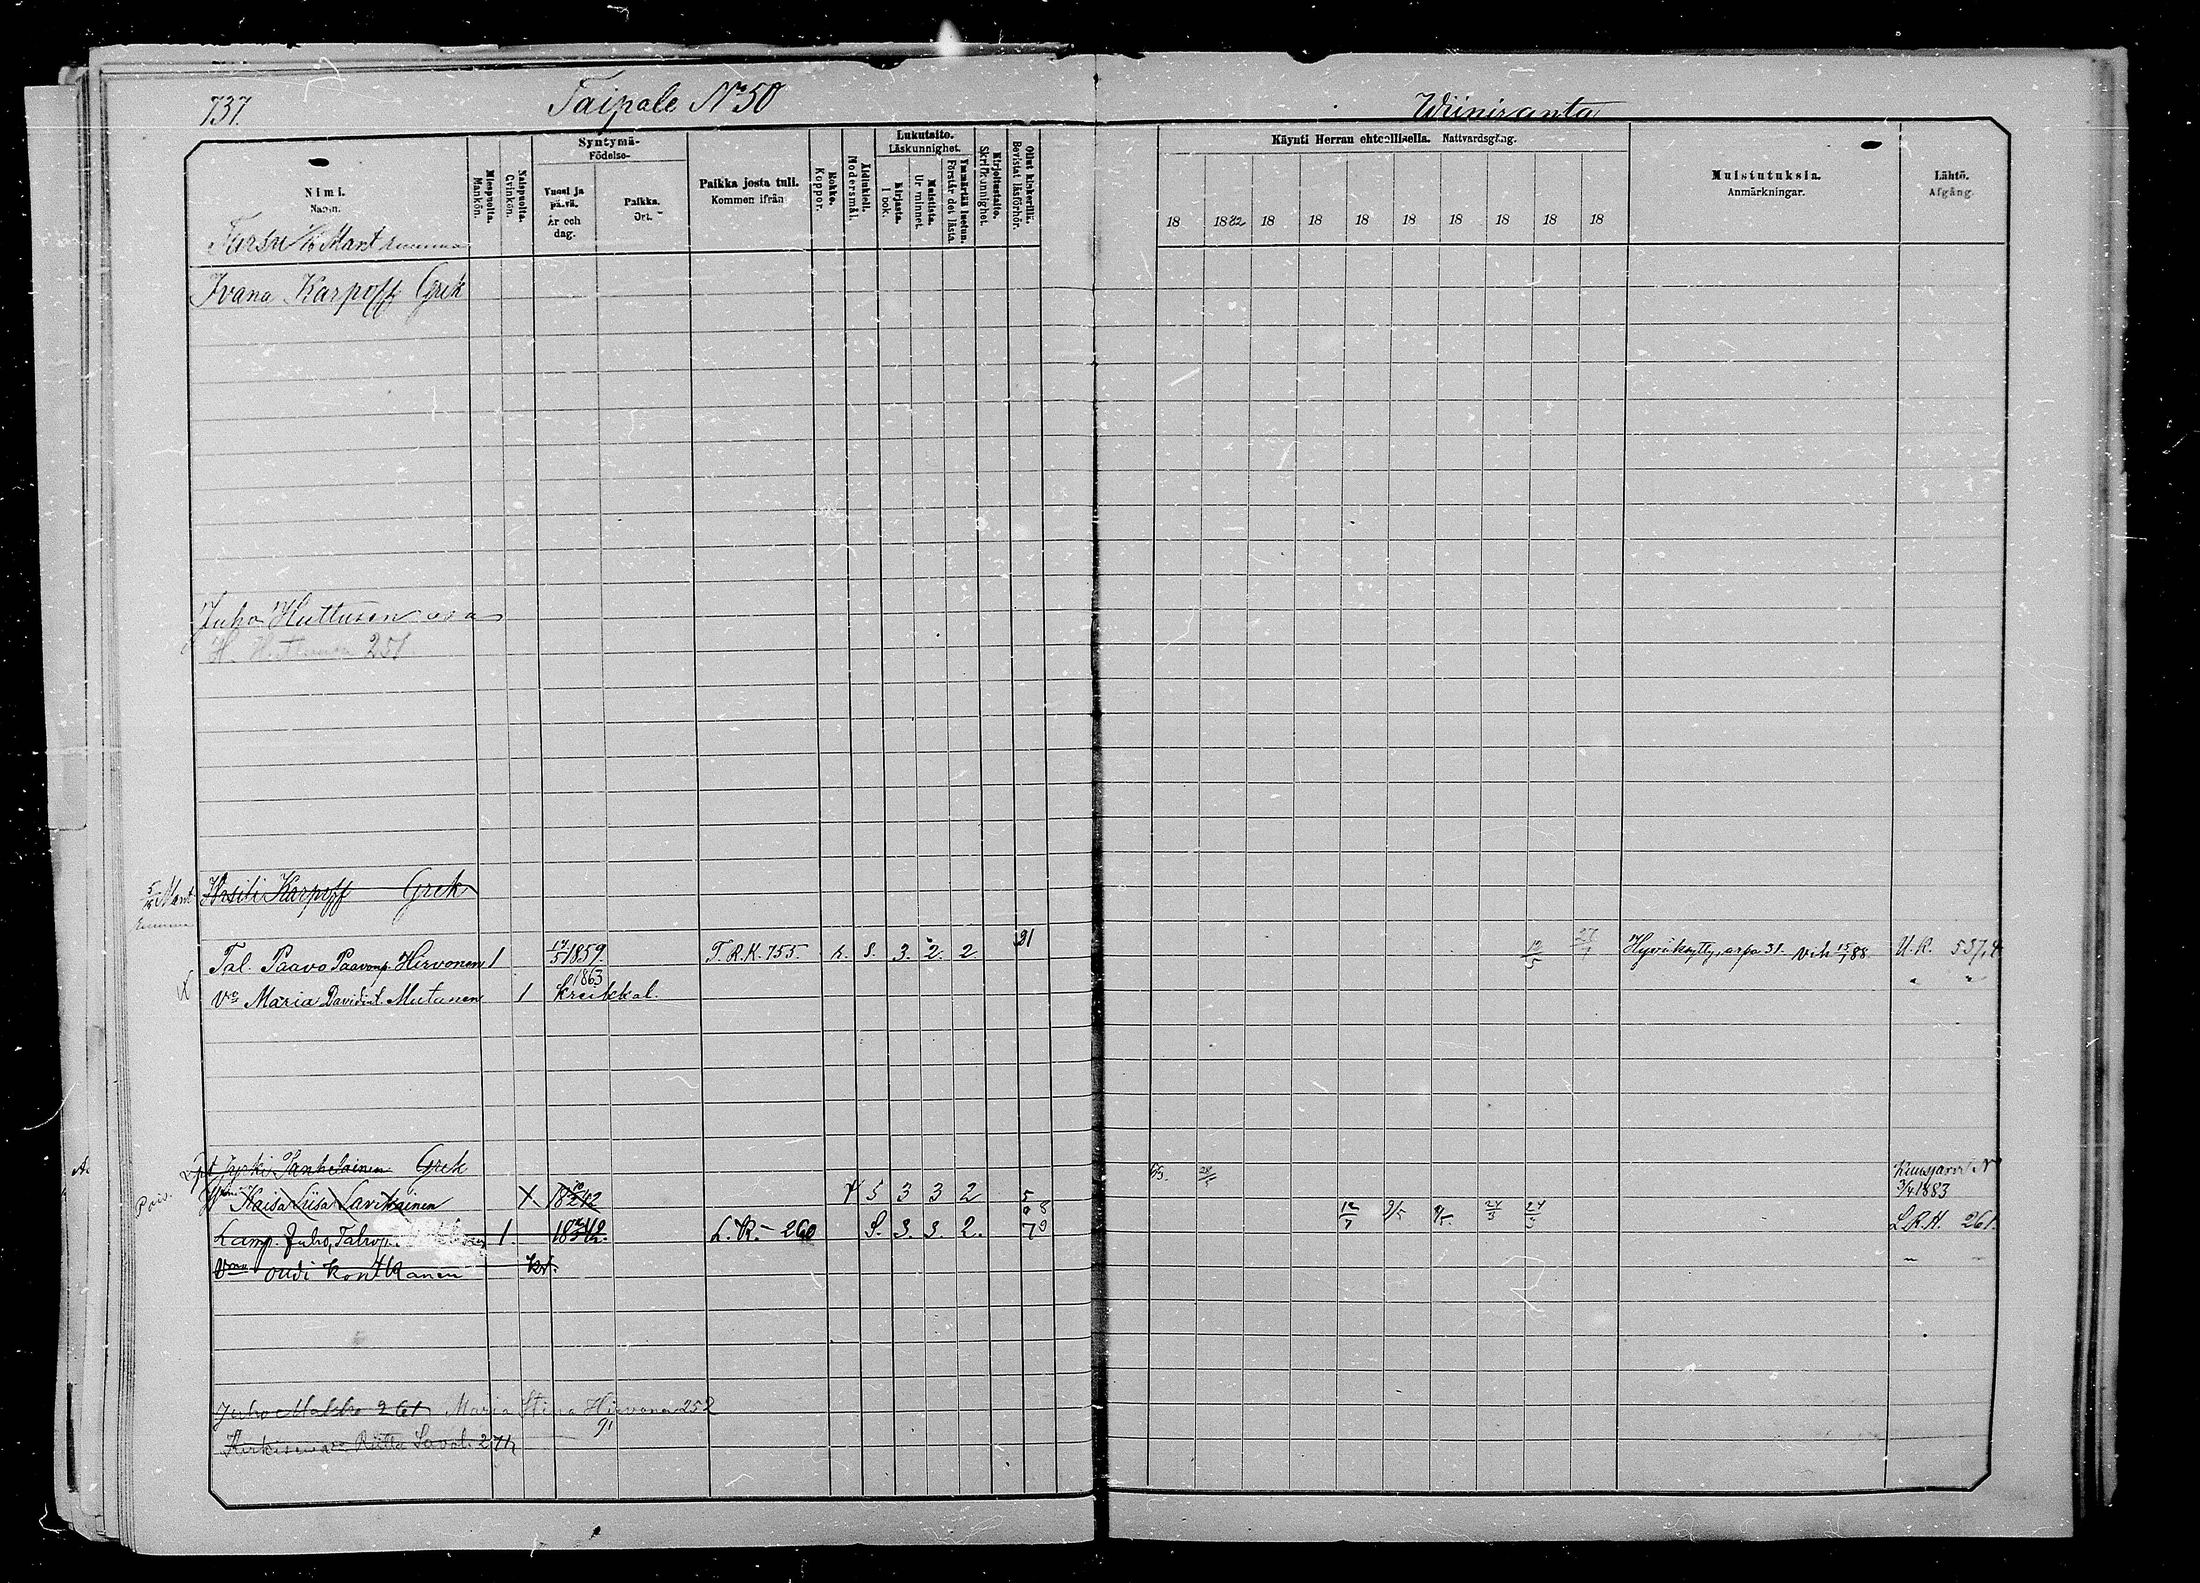 737. Taipale No 50 Wiiniranta
Nimi. Namn.
Miespuolta. Mankön.
Naispuolta. Qvinkön.
Syntymä- Födelse-
Vuosi ja päivä. År och dag.
Paikka. Ort.
Paikka josta tuli. Kommen ifrån
Rokko. Koppor.
Äidinkieli. Modersmål.
Lukutaito. Läskunnighet.
Kirjasta. I bok.
Muistista. Ur minnet.
Ymmärtää luetun. Förstår det lästa.
Kirjoitustaito. Skrifkunnighet.
Ollut kinkerillä. Bevistat läsförhör.
Käynti Herran ehtoollisella. Nattvardsgång.
18 1882 18 18 18 18 18 18 18 18
Muistutuksia. Anmärkningar.
Lähtö. Afgång.
Tarsu Mant
Ivana Karpoff Grek
Juho Huttusen osa
H. Huttunen 251
Mant Wasili Karpoff Grek
Tal. Paavo Paavonp. Hirvonen 1 17/5 1859. T.R.K. 755. r. S. 3. 2. 2 21 12/5 27/7 Hyväksytty, arpa 31. Vih 15/1 88 U.K. 537,4
Vo Maria Davidint. Mutunen 1 1863 kreikkal. " "
Jyrki Tanhelainen Grek
Pois. Kaisa Liisa Lavikainen X 1842 5 3 3 2 5 3/4 1883
Lamp. Juho, Talrop. 1. 1842 L.K. 260 S. 3. 3. 2. 12/7 9/5 9/5. L.R.H. 261.
Vmo oudi Kontkanen kr.
Juho Makko 261 Maria Stina Hirvonen 252
91
Riitta